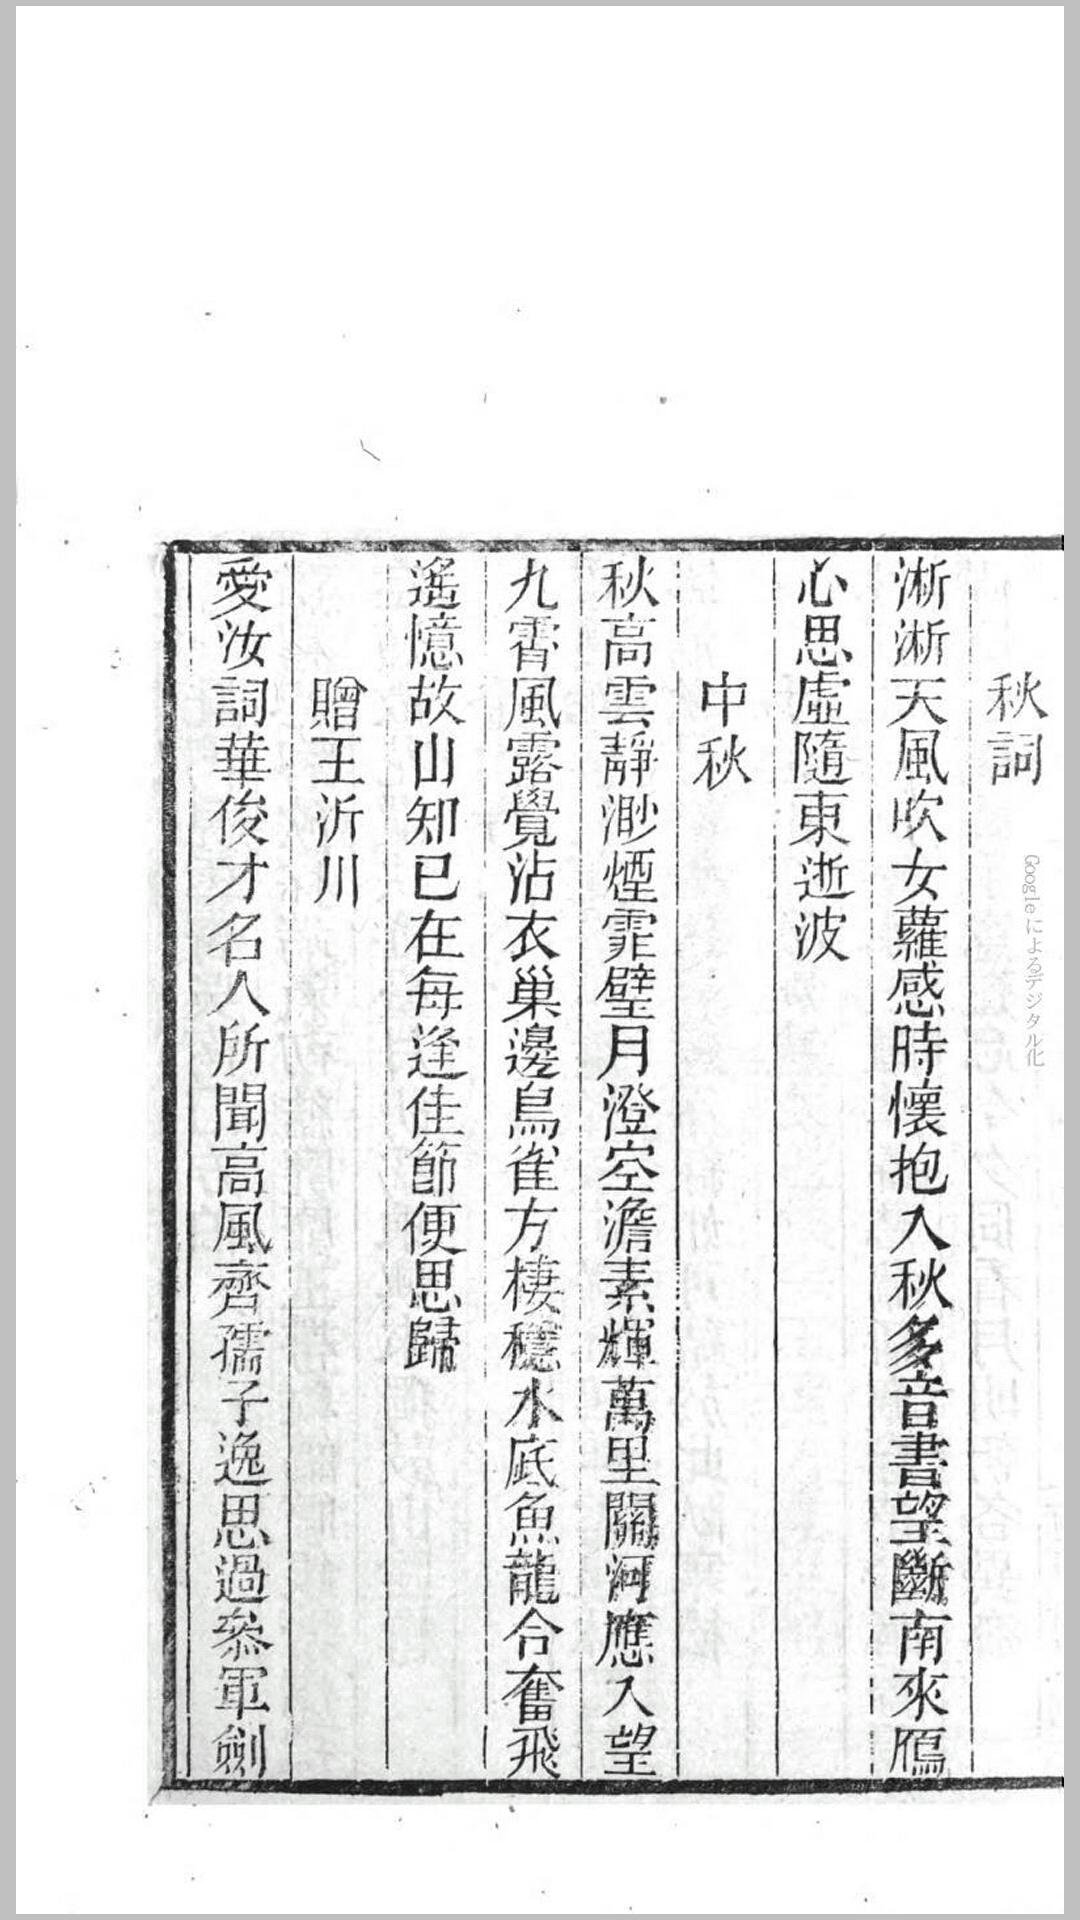 秋詞
淅淅天風吹女蘿感時懷抱入秋多音書望斷南來鴈
心思虛隨東逝波
中秋
秋高雲靜渺煙霏璧月澄空澹素輝萬里關河應入望
九霄風露覺沾衣巢邊鳥雀方棲穩水底魚龍合奮飛
遙憶故山知已在每逢佳節便思歸
贈王沂川
愛汝詞華俊才名人所聞高風齊孺子逸思過叅軍劍
Googleによるデジタル化